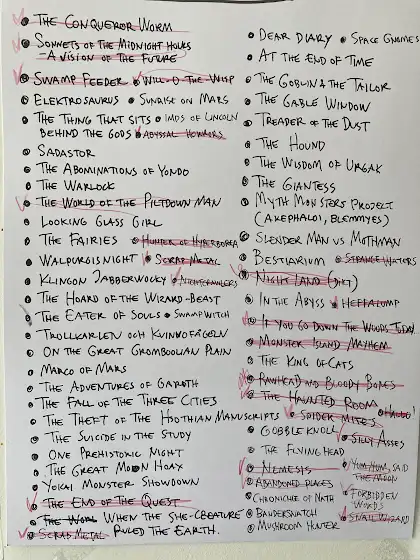 The Conqueror Worm
Sonnets of the Midnight Hours
- A Vision of the Future
Swamp Feeder • Will-o-the-Wisp
Elektrosaurus • Sunrise on Mars
The Thing That Sits • Imps of Lincoln
Behind the Gods • Abyssal Horrors
Sadastor
The Abominations of Yondo
The Warlock
The World of the Piltdown Man
Looking Glass Girl
The Fairies • Hunter of Hyperborea
Walpurgisnight • Scrap Metal
Klingon Jabberwocky • Nightcrawlers
The Hoard of the Wizard-Beast
The Eater of Souls • Swampwitch
Trollkarlen och Kvinnofågeln
On the Great Gromboolian Plain
Marco of Mars
The Adventures of Garoth
The Fall of the Three Cities
The Theft of the Hsothian Manuscripts
The Suicide in the Study
One Prehistoric Night
The Great Moon Hoax
Yokai Monster Showdown
The End of the Quest
The Worl When the She-Creature
Scrap Metal Ruled the Earth.
Dear Diary • Space Gnomes
At the End of Time
The Goblin & the Tailor
The Gable Window
Treader of the Dust
The Hound
The Wisdom of Urgak
The Giantess
Myth Monsters Project
(Akephaloi, Blemmyes)
Slender Man vs Mothman
Bestiarium • Strange Waters
Night Land
In the Abyss • Heffalump
If You Go Down the Woods Today
Monster Island Mayhem
The King of Cats
Rawhead and Bloody Bones
The Haunted Room
Spider Mites
Gobble Knoll • Silly Asses
The Flying Head
Nemesis • Yum, Yum, Said
The Moon
Abandoned Places
Forbidden
Words
Chronicle of Nath
Bandersnatch • Snail Wizard
Mushroom Hunter